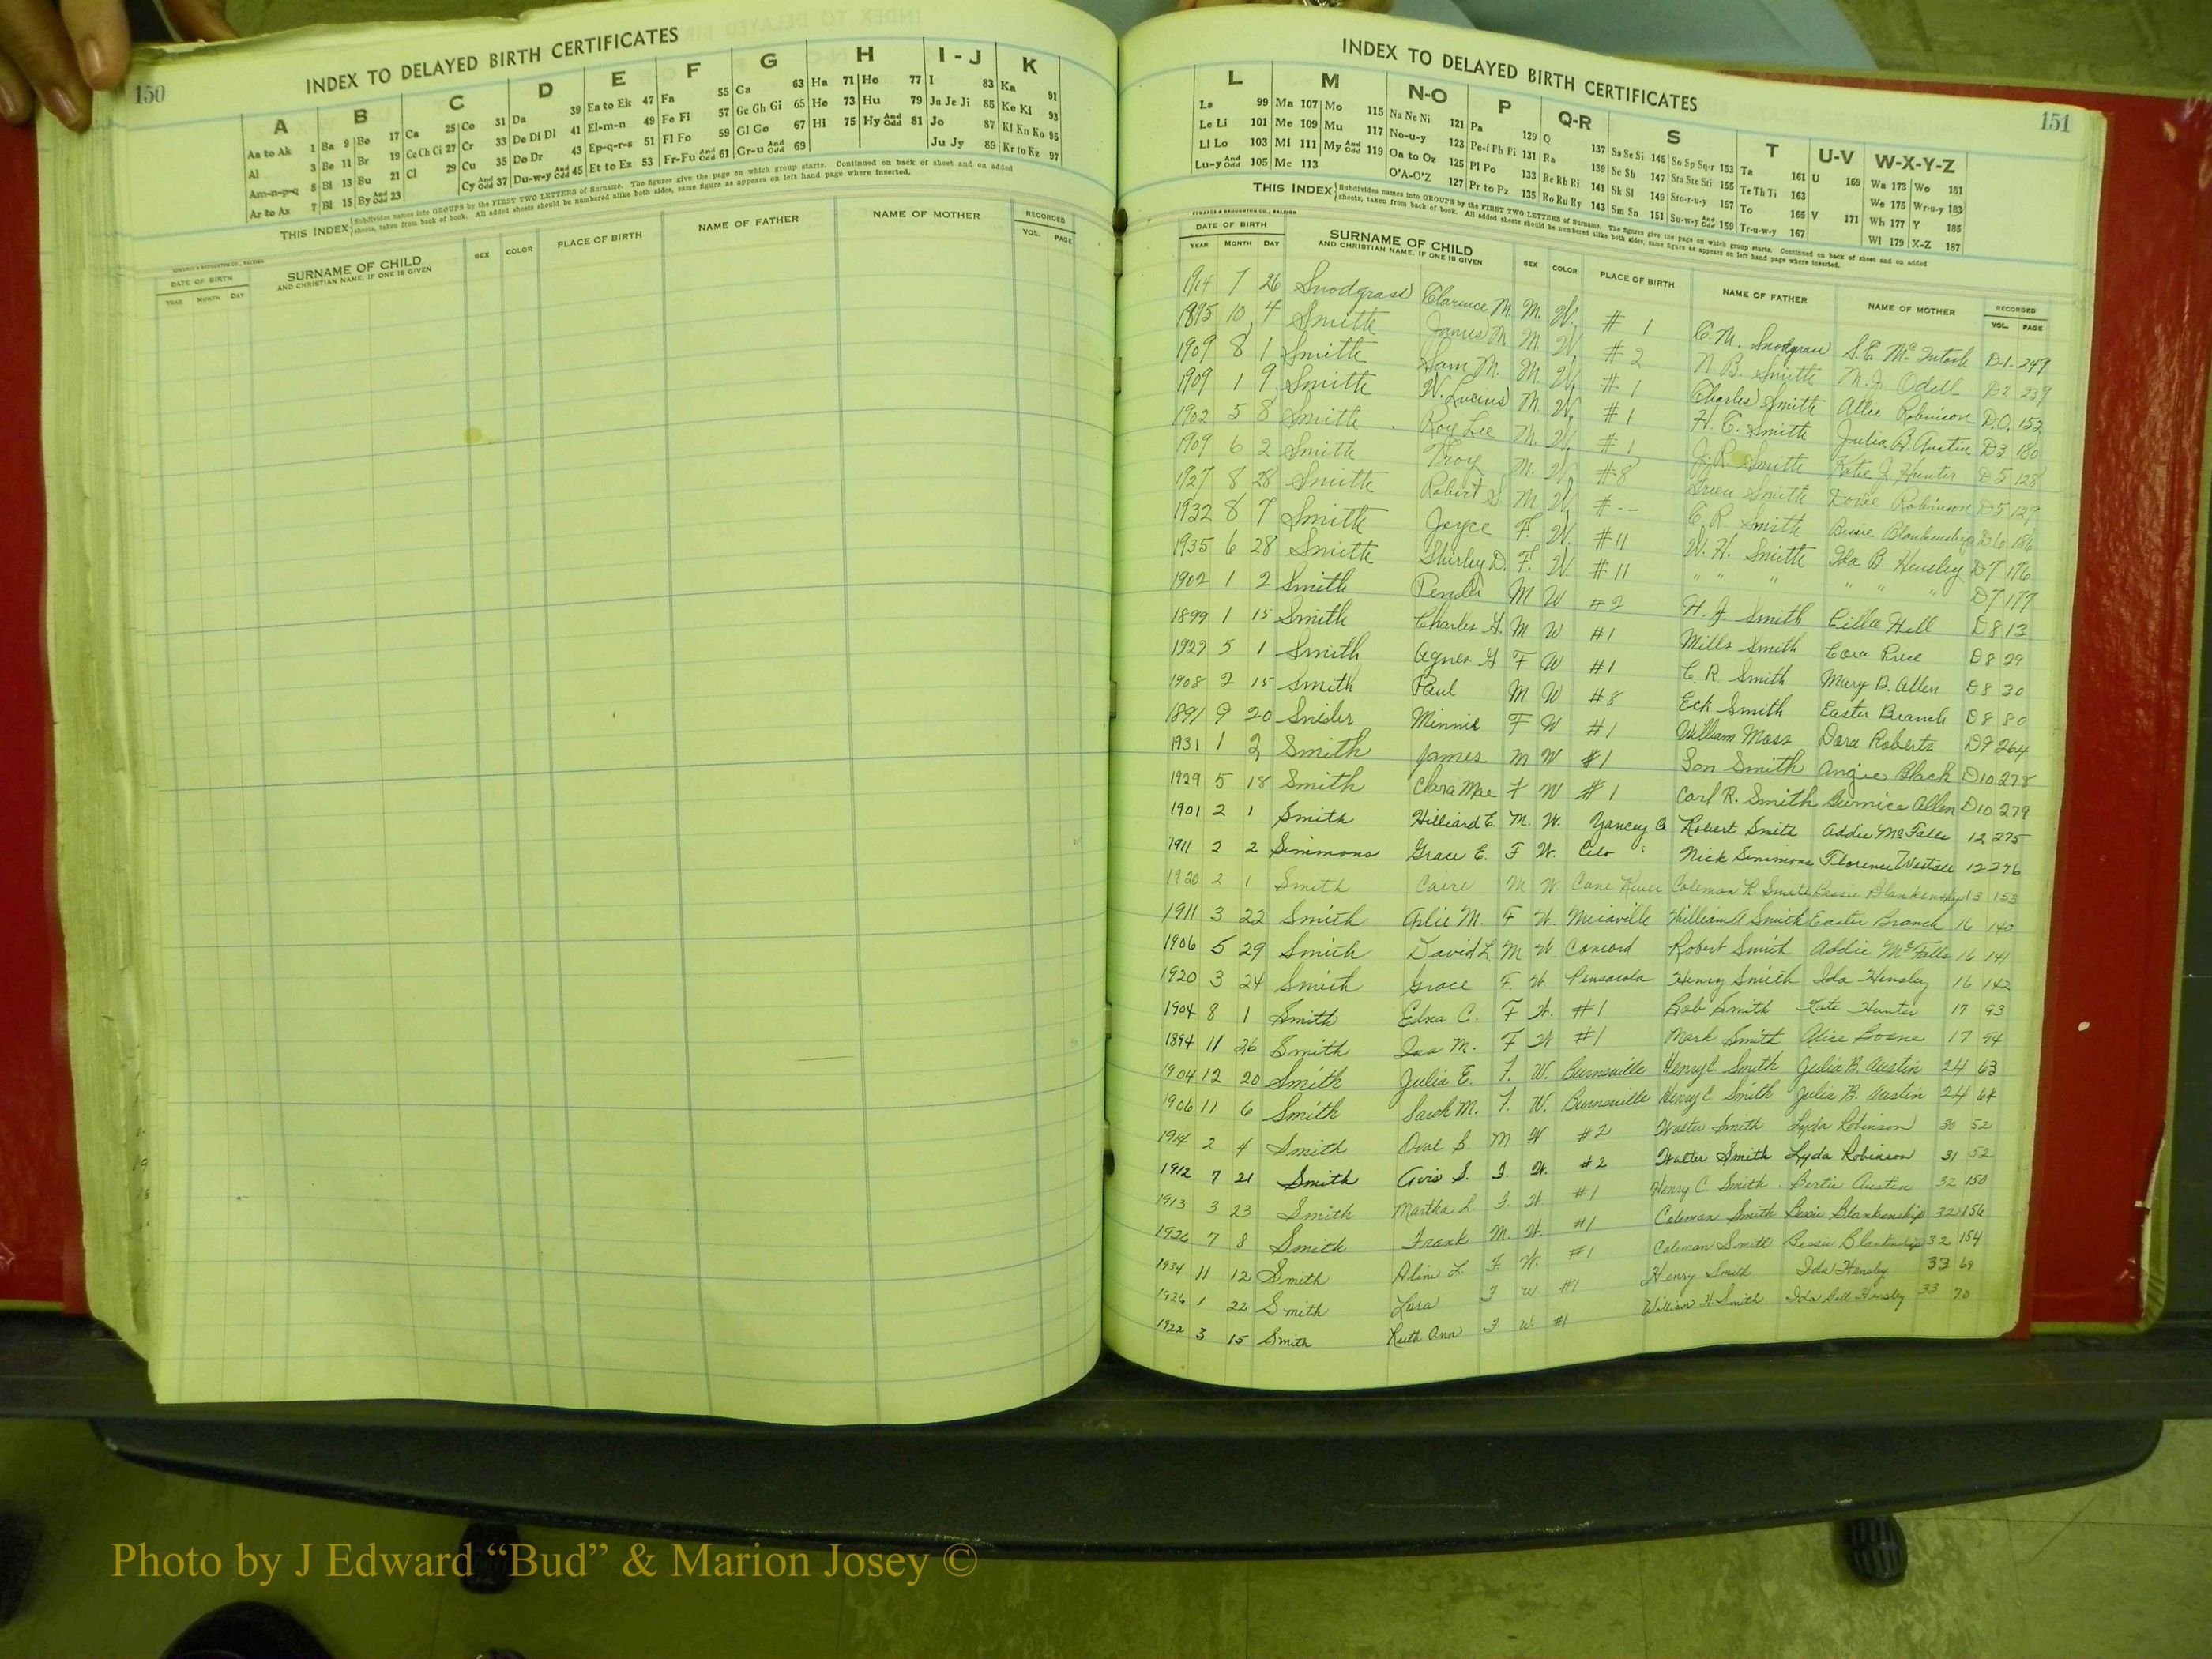 150
INDEX TO DELAYED BIRTH CERTIFICATES
A B C D E F G H I-J K
Aa to Ak 1 Ba 9 Bo 17 Ca 25 Co 31 Da 39 Ea to Ek 47 Fa 55 Ga 63 Ha 71 Ho 77 I 83 Ka 91
Al 3 Be 11 Br 19 Ce Ch Ci 27 Cr 33 De Di Dl 41 El-m-n 49 Fe Fi 57 Ge Gh Gi 65 He 73 Hu 79 Ja Je Ji 85 Ke Ki 93
Am-n-p-q 5 Bi 13 Bu 21 Cl 29 Cu 35 Do Dr 43 Ep-q-r-s 51 Fl Fo 59 Gl Go 67 Hi 75 Hy And Odd 81 Jo 87 Kl Kn Ko 95
Ar to Az 7 Bl 15 By And Odd 23 Cy And Odd 37 Du-w-y And Odd 45 Et to Ez 53 Fr-Fu And Odd 61 Gr-u And Odd 69 Ju Jy 89 Kr to Kz 97
THIS INDEX Subdivides names into GROUPS by the FIRST TWO LETTERS of Surname. The figures give the page on which group starts. Continued on back of sheet and on added
sheets, taken from back of book. All added sheets should be numbered alike both sides, same figure as appears on left hand page where inserted.
EDWARDS & BROUGHTON CO., RALEIGH
DATE OF BIRTH SURNAME OF CHILD SEX COLOR PLACE OF BIRTH NAME OF FATHER NAME OF MOTHER RECORDED
YEAR MONTH DAY AND CHRISTIAN NAME, IF ONE IS GIVEN VOL. PAGE
INDEX TO DELAYED BIRTH CERTIFICATES
151
L M N-O P Q-R S T U-V W-X-Y-Z
La 99 Ma 107 Mo 115 Na Ne Ni 121 Pa 129 Q 137 Sa Se Si 145 So Sp Sq-r 153 Ta 161 U 169 Wa 173 Wo 181
Le Li 101 Me 109 Mu 117 No-u-y 123 Pe-f Ph Pi 131 Ra 139 Sc Sh 147 Sta Ste Sti 155 Te Th Ti 163 We 175 Wr-u-y 183
Ll Lo 103 Mi 111 My And Odd 119 Oa to Oz 125 Pl Po 133 Re Rh Ri 141 Sk Sl 149 Sto-r-u-y 157 To 165 V 171 Wh 177 Y 185
Lu-y And Odd 105 Mc 113 O'A-O'Z 127 Pr to Pz 135 Ro Ru Ry 143 Sm Sn 151 Su-w-y And Odd 159 Tr-u-w-y 167 Wi 179 X-Z 187
THIS INDEX Subdivides names into GROUPS by the FIRST TWO LETTERS of Surname. The figures give the page on which group starts. Continued on back of sheet and on added
sheets, taken from back of book. All added sheets should be numbered alike both sides, same figure as appears on left hand page where inserted.
EDWARDS & BROUGHTON CO., RALEIGH
DATE OF BIRTH SURNAME OF CHILD SEX COLOR PLACE OF BIRTH NAME OF FATHER NAME OF MOTHER RECORDED
YEAR MONTH DAY AND CHRISTIAN NAME, IF ONE IS GIVEN VOL. PAGE
1914 7 26 Snodgrass Clarence M. M. W. #1 C. M. Snodgrass S. E. McIntosh D1 249
1895 10 4 Smith James M M W #2 N. B. Smith M. J. Odell D2 239
1909 8 1 Smith Sam M. M. W. #1 Charles Smith Allie Robinson D.O. 152
1909 1 9 Smith W. Lucius M W. #1 H. C. Smith Julia B. Austin D3 180
1902 5 8 Smith Roy Lee M. W. #1 J. R. Smith Katie J. Hunter D5 128
1909 6 2 Smith Troy M. W. #8 Green Smith Dovie Robinson D5 129
1927 8 28 Smith Robert M W. #-- C. R. Smith Bessie Blankenship D6 186
1932 8 7 Smith Joyce F. W. #11 W. H. Smith Ida B. Hensley D7 176
1935 6 28 Smith Shirley D. F. W. #11 " " " " " D7 177
1902 1 2 Smith Pender M W #2 H. J. Smith Cilla Hell D8 13
1899 1 15 Smith Charles G. M W #1 Mills Smith Cora Rice D8 29
1927 5 1 Smith Agnes G F W #1 C. R. Smith Mary B. Allen D8 30
1908 2 15 Smith Paul M W #8 Eck Smith Easter Branch D8 80
1891 9 20 Snider Minnie F W #1 William Moss Dora Roberts D9 264
1931 1 2 Smith James M W #1 Son Smith Angie Black D10 278
1929 5 18 Smith Clara Mae F W #1 Carl R. Smith Burnice Allen D10 279
1901 2 1 Smith Hilliard E. M. W. Yancey Co Robert Smith Addie McFalls 12 275
1911 2 2 Simmons Grace E. F W. Celo " Nick Simmons Florence Westall 12 276
1920 2 1 Smith M W Cane River Coleman R. Smith Bessie Blankenship 13 153
1911 3 22 Smith Arlie M. F W. Micaville William A Smith Easter Branch 16 140
1906 5 29 Smith David L M W Concord Robert Smith Addie McFalls 16 141
1920 3 24 Smith Grace F. W. Pensacola Henry Smith Ida Hensley 16 142
1904 8 1 Smith Edna C. F W. #1 Bob Smith Kate Hunter 17 93
1894 11 26 Smith M. F W #1 Mark Smith Alice Boone 17 94
1904 12 20 Smith Julia E. F. W. Burnsville Henry C Smith Julia B. Austin 24 63
1906 11 6 Smith Sarah M. F. W. Burnsville Henry C Smith Julia B. Austin 24 64
1914 2 4 Smith Oval B M W #2 Walter Smith Lyda Robinson 30 52
1912 7 21 Smith Avis S. F. W. #2 Walter Smith Lyda Robinson 31 52
1913 3 23 Smith Martha L. F. W. #1 Henry C. Smith Bertie Austin 32 150
1926 7 8 Smith Frank M. W. #1 Coleman Smith Bessie Blankenship 32 156
1934 11 12 Smith Aline L. F. W. #1 Coleman Smith Bessie Blankenship 32 154
1926 1 22 Smith Lora F W #1 Henry Smith Ida Hensley 33 69
1922 3 15 Smith Ruth Ann F W. #1 William H. Smith Ida Bell Hensley 33 70
Photo by J Edward “Bud” & Marion Josey ©